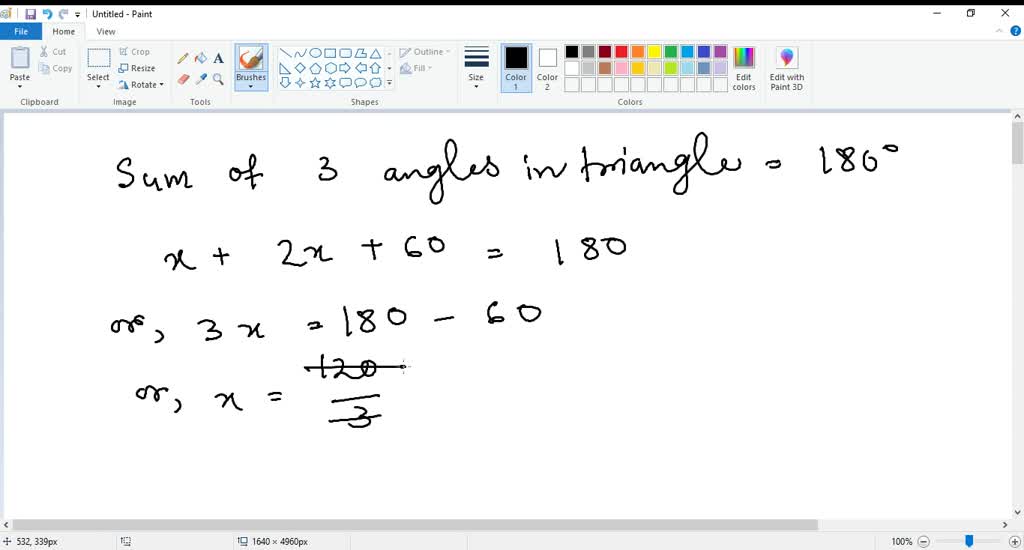 Untitled - Paint
File Home View
Paste Cut Copy Select Crop Resize Rotate Brushes Outline Fill Size Color 1 Color 2 Edit colors Edit with Paint 3D
Clipboard Image Tools Shapes Colors
Sum of 3 angles in triangle = 180°
x + 2x + 60 = 180
or, 3x = 180 - 60
or, x = 120/3
532, 339px 1640 × 4960px 100%